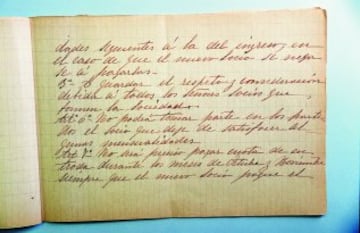 dades siguientes á la del ingreso, en
el caso de que el nuevo socio se nega
se á pagarlas.
5ª Guardar el respeto y consideración
debida á todos los señores socios que
formen la sociedad.
Art. 6º No podrá tomar parte en los parti-
dos el socio que deje de satisfacer al
gunas mensualidades
Art. 7º No será preciso pagar cuota de en
trada durante los meses de Octubre y Noviembre
siempre que el nuevo socio pague el